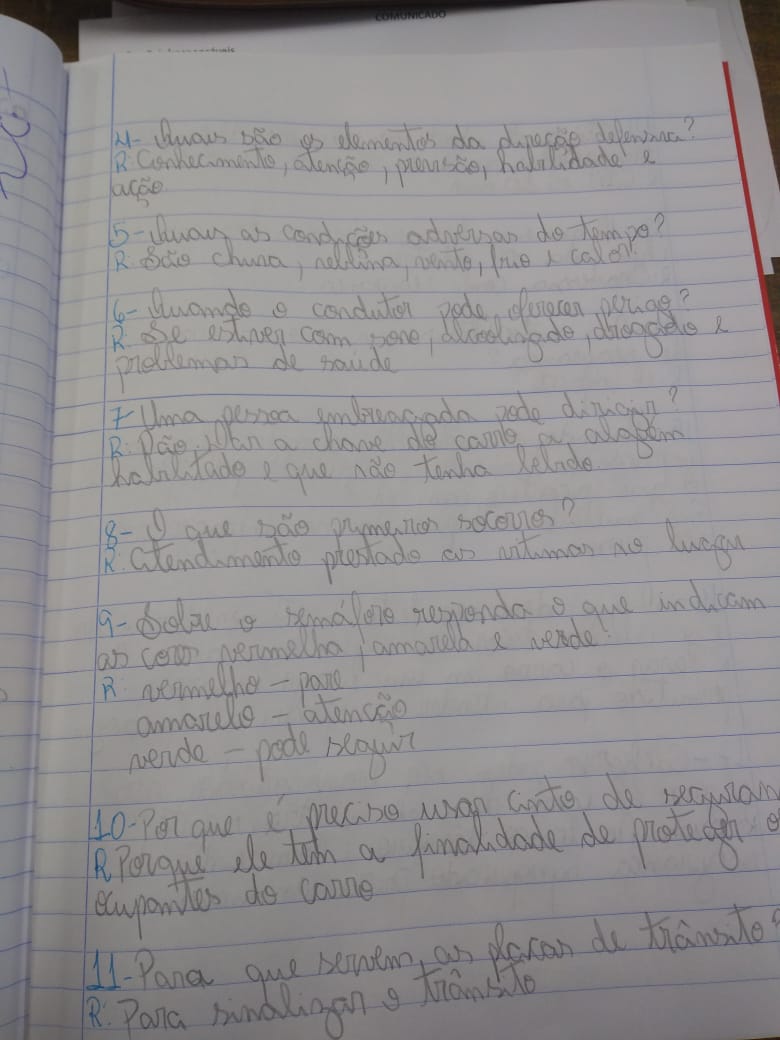 COMUNICADO
4- Quais são os elementos da direção defensiva?
R: Conhecimento, atenção, previsão, habilidade e
ação.
5- Quais as condições adversas do tempo?
R: São chuva, neblina, vento, frio e calor.
6- Quando o condutor pode oferecer perigo?
R: Se estiver com sono, alcoolizado, drogado e
problemas de saúde
7- Uma pessoa embreagada pode dirigir?
R: Não, dar a chave do carro a alguém
habilitado e que não tenha bebido
8- O que são primeiros socorros?
R: Atendimento prestado as vitimas no lugar
9- Sobre o semáforo responda o que indicam
as cores vermelha, amarela e verde!
R: vermelho - pare
amarelo - atenção
verde - pode seguir
10- Por que é preciso usar cinto de seguran
R Porque ele tem a finalidade de proteger o
ocupantes do carro
11- Para que servem as placas de trânsito?
R: Para sinalizar o trânsito